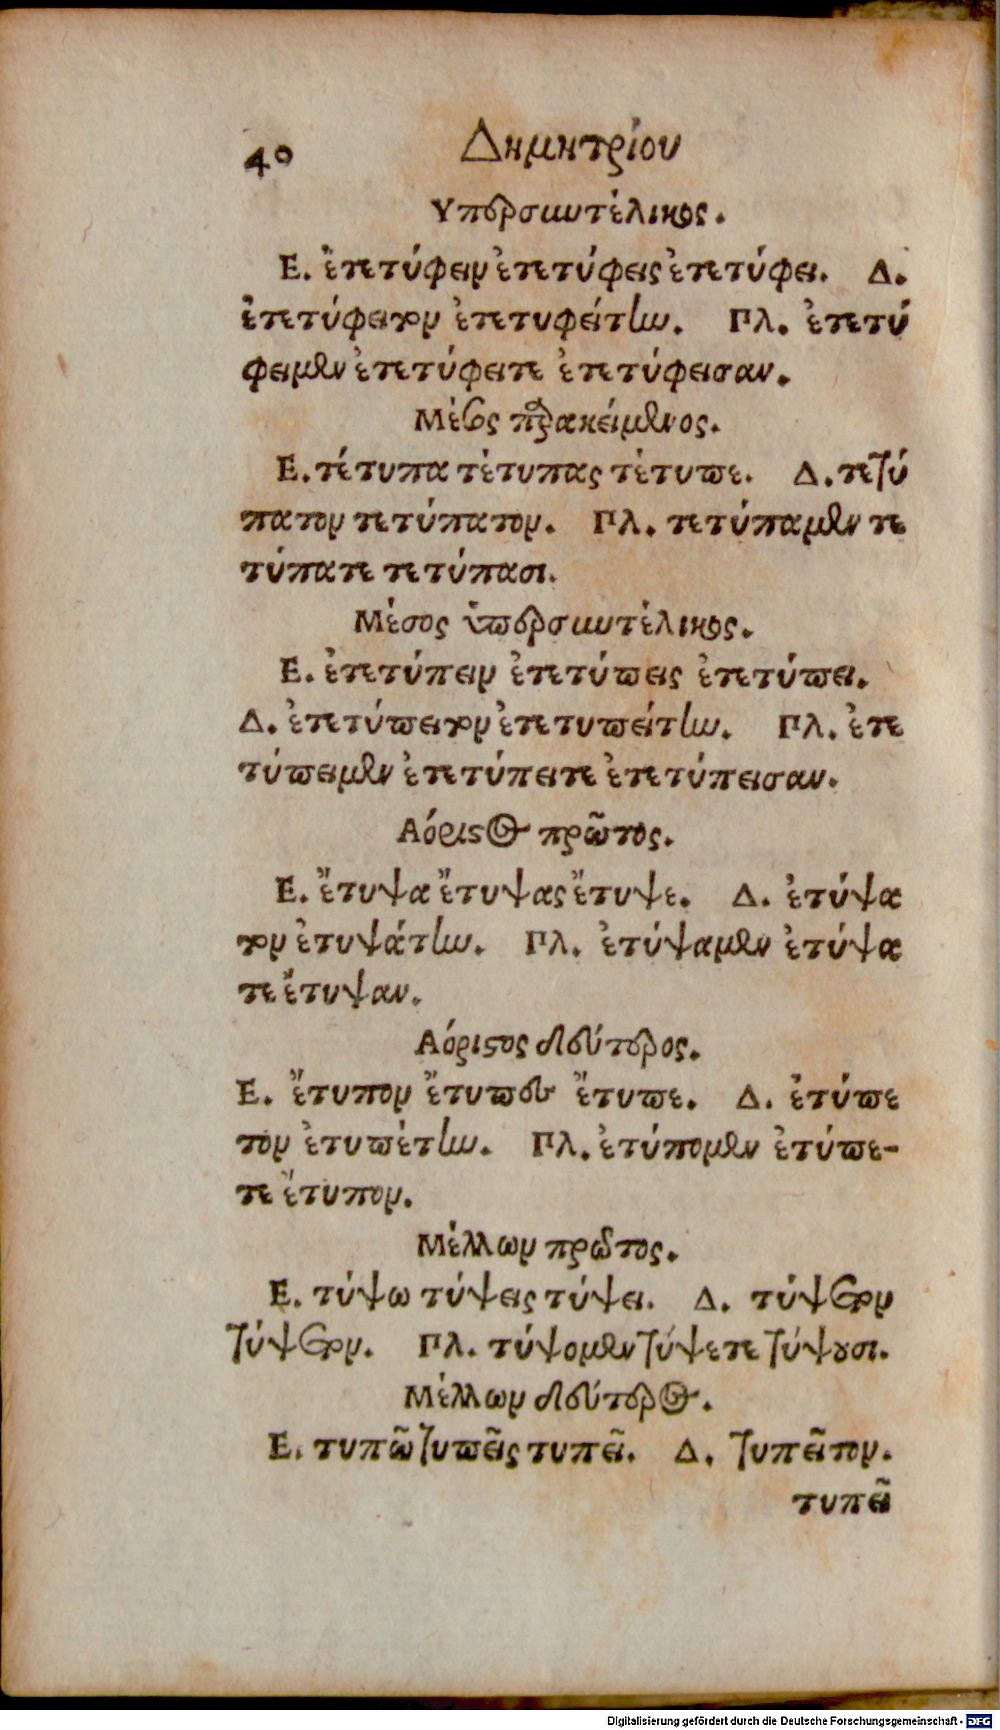 40 Δημητρίου
Υπερσιωτέλικος.
Ε. ἐτετύφειν ἐτετύφεις ἐτετύφει. Δ.
ἐτετύφειτον ἐτετυφείτην. Πλ. ἐτετύ
φειμεν ἐτετύφειτε ἐτετύφεισαν.
Μέσος παρακείμενος.
Ε. τέτυπα τέτυπας τέτυπε. Δ. τετύ
πατον τετύπατον. Πλ. τετύπαμεν τε
τύπατε τετύπασι.
Μέσος ὑπερσιωτέλικος.
Ε. ἐτετύπειν ἐτετύπεις ἐτετύπει.
Δ. ἐτετύπειτον ἐτετυπείτην. Πλ. ἐτε
τύπειμεν ἐτετύπειτε ἐτετύπεισαν.
Αόριστος πρῶτος.
Ε. ἔτυψα ἔτυψας ἔτυψε. Δ. ἐτύψα
τον ἐτυψάτην. Πλ. ἐτύψαμεν ἐτύψα
τε ἔτυψαν.
Αόριστος δεύτερος.
Ε. ἔτυπον ἔτυπες ἔτυπε. Δ. ἐτύπε
τον ἐτυπέτην. Πλ. ἐτύπομεν ἐτύπε-
τε ἔτυπον.
Μέλλων πρῶτος.
Ε. τύψω τύψεις τύψει. Δ. τύψετον
τύψετον. Πλ. τύψομεν τύψετε τύψουσι.
Μέλλων δεύτερος.
Ε. τυπῶ τυπεῖς τυπεῖ. Δ. τυπεῖτον.
τυπεῖ
Digitalisierung gefördert durch die Deutsche Forschungsgemeinschaft - DFG